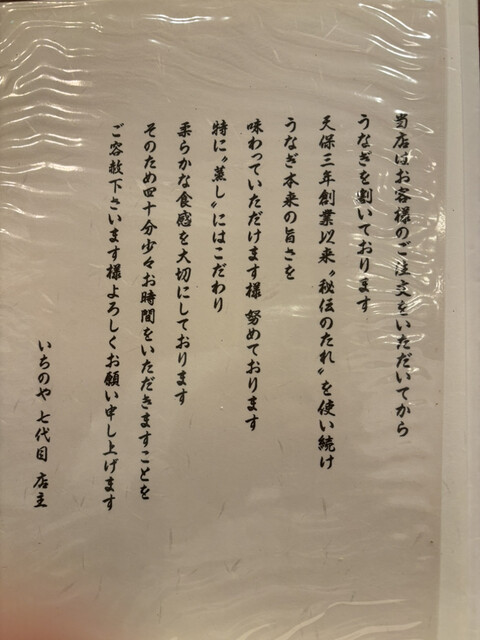 当店はお客様のご注文をいただいてから
うなぎを割いております
天保三年創業以来〝秘伝のたれ〟を使い続け
うなぎ本来の旨さを
味わっていただけます様 努めております
特に〝蒸し〟にはこだわり
柔らかな食感を大切にしております
そのため四十分少々お時間をいただきますことを
ご容赦下さいます様よろしくお願い申し上げます
いちのや 七代目 店主